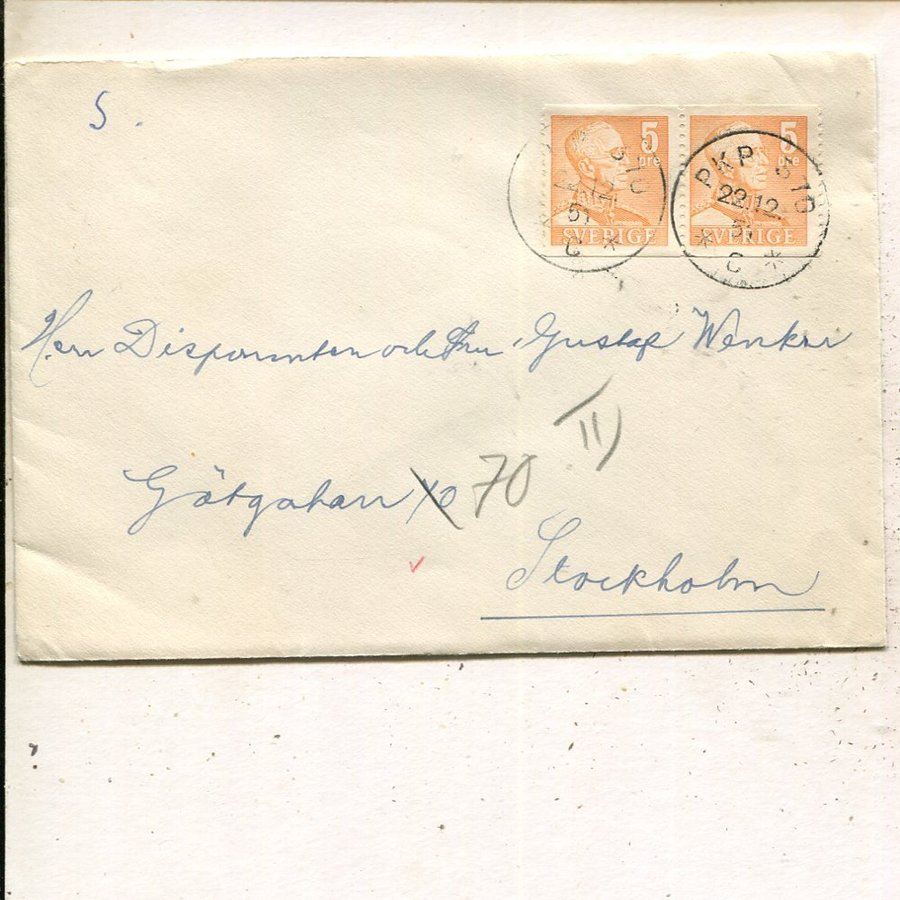 S.
5 öre SVERIGE
5 öre SVERIGE
PKP 570
22.12
51
C
Herr Disponenten och Fru Gustaf Wenker
II)
Götgatan 70
Stockholm